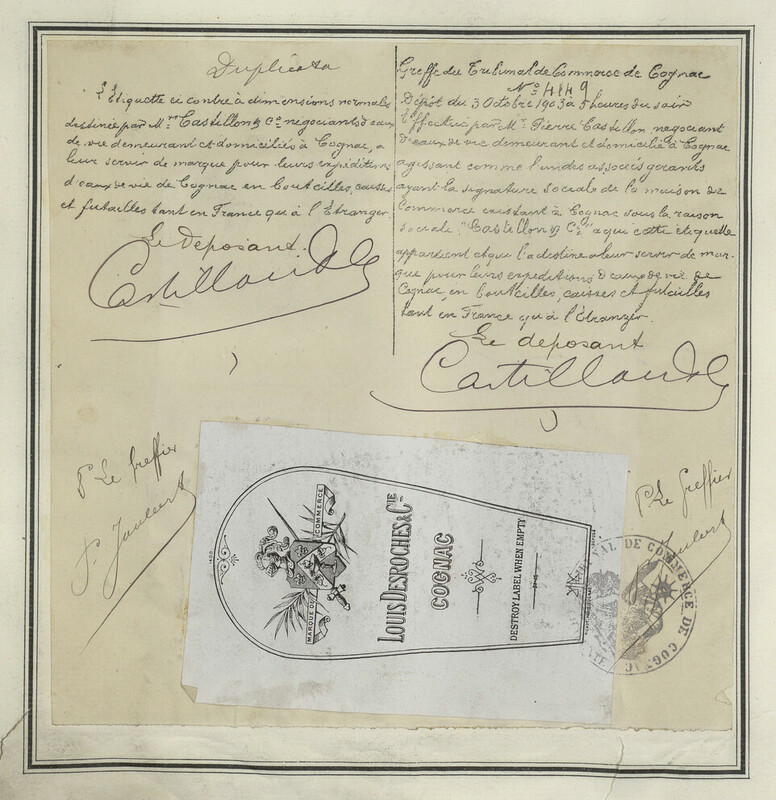 Duplicata
L'Etiquette ci contre à dimensions normales
destinée par Mrs Castillon & Co négociants d'eaux
de vie demeurant et domiciliés à Cognac, a
leur servir de marque pour leurs expéditions
d'eaux de vie de Cognac en bouteilles, caisses
et futailles tant en France qu'à l'Etranger.
Le deposant
Castillon & Co
P Le Greffier
P. Joubert
Greffe du Tribunal de Commerce de Cognac
No 4149
Dépôt du 3 Octobre 1903 à 5 heures du soir
Effectué par Mr Pierre Castillon négociant
d'eaux de vie demeurant et domicilié à Cognac
agissant comme l'un des associés gérants
ayant la signature sociale de la maison de
Commerce existant à Cognac sous la raison
sociale "Castillon & Co" a qui cette étiquette
appartient et qui l'a destine a leur servir de mar-
que pour leurs expéditions d'eaux de vie de
Cognac, en bouteilles, caisses et futailles
tant en France qu'à l'Etranger.
Le deposant
Castillon & Co
P Le Greffier
Joubert
MARQUE DE COMMERCE
LOUIS DESROCHES & CIE
COGNAC
DESTROY LABEL WHEN EMPTY
TRIBUNAL DE COMMERCE DE COGNAC